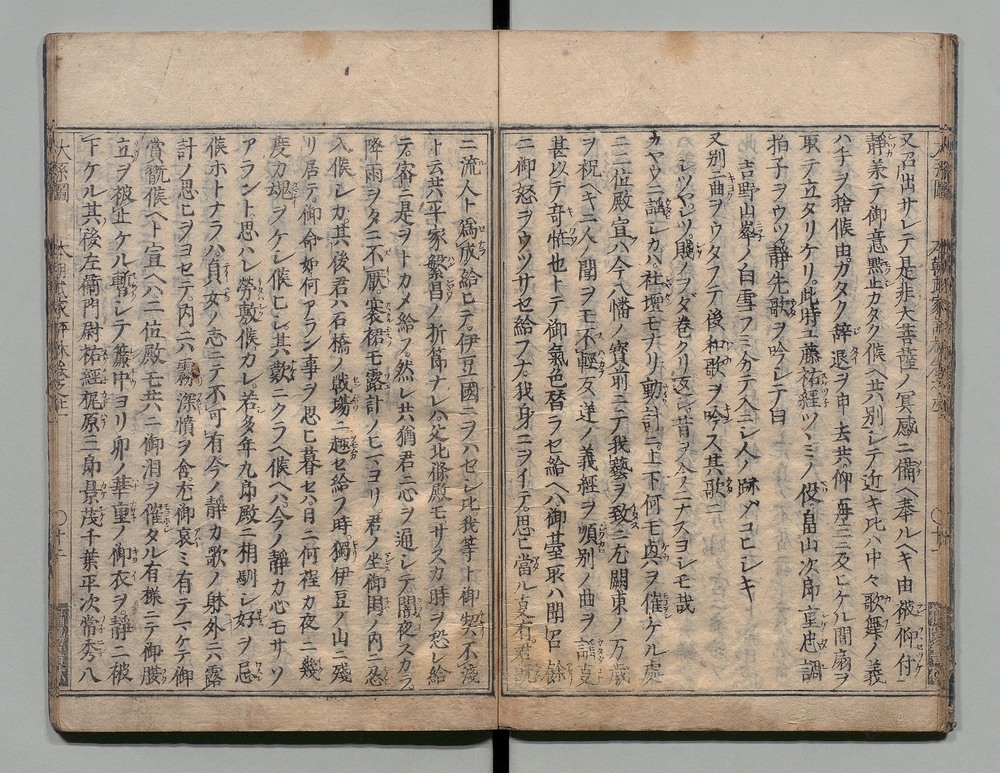 又召出サレテ是非大菩薩ノ冥感ニ備ヘ奉ルヘキ由被仰付
静兼テ御意黙止カタク候ヘ共別レテ近キ比ハ中々歌舞ノ義
ハチヲ捨候由カタク辞退ヲ申去共仰毎三及ヒケル間扇ヲ
取テ立タリケリ此時工藤祐経ツヽミノ役畠山次郎重忠調
拍子ヲウツ静先歌ヲ吟シテ曰
吉野山峯ノ白雪フミ分テ入ニシ人ノ跡ソコヒシキ
又別ニ曲ヲウタフテ後和歌ヲ吟ス其歌ニ
シツヤシツ賤ノヲダ巻クリ返シ昔ヲ今ニナスヨシモ哉
カヤウニ謡シカハ社壇モナリ動計ニ上下何モ興ヲ催ケル處
ニ二位殿宣ハ今八幡ノ寳前ニテ我藝ヲ致ニ尤關東ノ万歳
ヲ祝ヘキニ人聞ヲモ不軽反逆ノ義経ヲ顕別ノ曲ヲ謡支
甚以テ奇恠也トテ御氣色替ラセ給ヘハ御臺聞召餘
ニ御怒ヲウツサセ給フナ我身ニヲイテ思ヒ當ル支有君既
ニ流人ト成給ヒテ伊豆國ニヲハセシ比我等ト御契不淺
ト云共平家繁昌ノ折節ナレハ父北條殿モサスカ時ヲ恐レ給
テ密ニ是ヲトカメ給フ然レ共猶君ニ心ヲ通シテ闇夜スカラ
降雨ヲタニ不厭裳裙モ露計ノヒマヨリ君ノ坐御閨ノ内ニ忍
入候シカ其後君ハ石橋ノ戰場ニ趣セ給フ時獨伊豆ノ山ニ殘
リ居テ御命如何アラン事ヲ思ヒ暮セハ日ニ何程カ夜ニ幾
度カ魂ヲケシ候ヒシ其歎ニクラヘ候ヘハ今ノ静カ心モサソ
アラント思ハレ労敷候カレ若多年九郎殿ニ相馴シ好ヲ忘
候ホトナラハ貞女ノ志ニテ不可有今ノ静カ歌ノ躰外ニハ露
計ノ思ヒヲヨセテ内ニハ霧深憤ヲ含尤御哀ミ有テマケテ御
賞翫候ヘト宣ヘハ二位殿モ共ニ御泪ヲ催タル有様ニテ御腹
立ヲ被止ケル暫シテ簾中ヨリ卯ノ華重ノ御衣ヲ静ニ被
下ケル其後左衛門尉祐經梶原三郎景茂千葉平次常秀八
大系圖